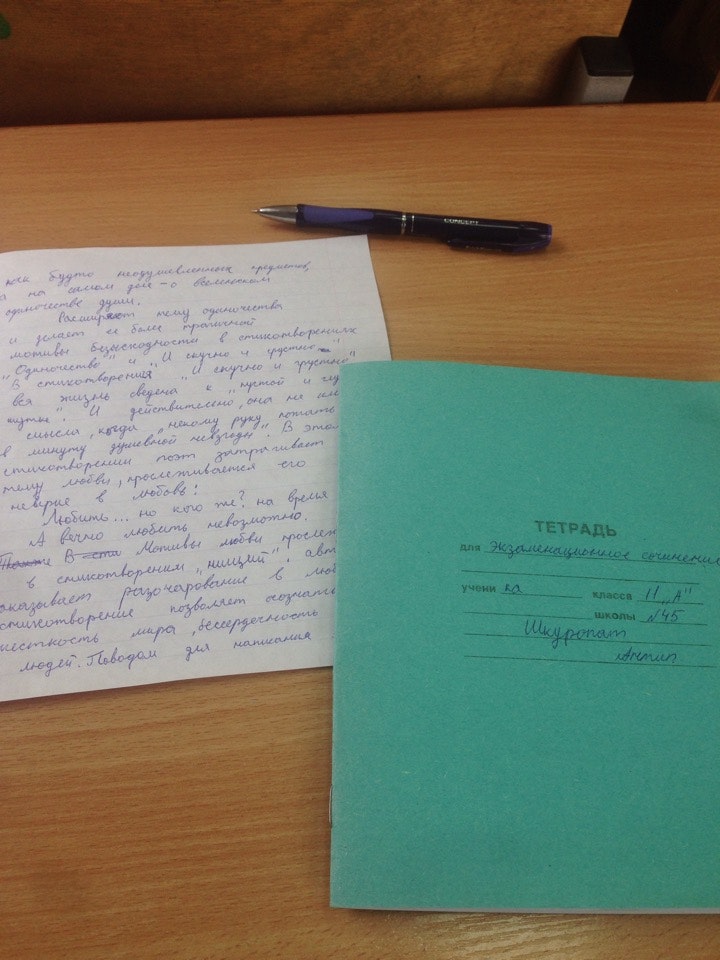 CONCEPT
как будто неодушевленных предметов,
а на самом деле – о вселенском
одиночестве души.
Расширяет тему одиночества
и делает ее более трагичной
мотивы безысходности в стихотворениях
"Одиночество" и "И скучно и грустно".
В стихотворении "И скучно и грустно"
вся жизнь сведена к "пустой и глу
шутке". И действительно, она не им
смысла, когда "некому руку подать
в минуту душевной невзгоды". В этом
стихотворении поэт затрагивает
тему любви, прослеживается его
неверие в любовь:
Любить... но кого же? на время
А вечно любить невозможно.
В Мотивы любви прослеж
в стихотворении "нищий". авт
разочарование в люб
стихотворение позволяет осознать
жесткость мира, бессердечность
людей. Поводом для написания
ТЕТРАДЬ
для экзаменационное сочинение
учени ка класса 11 "А"
школы №45
Шкуропат
Антип